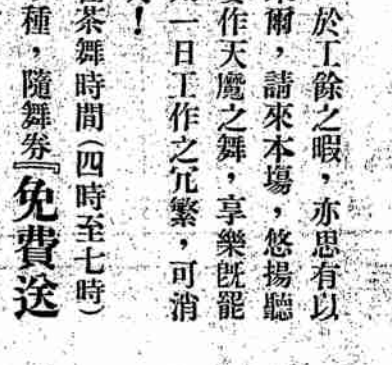 於工餘之暇，亦思有以
爾，請來本場，悠揚聽
作天魔之舞，享樂旣罷
一日工作之冗繁，可消
！
茶舞時間（四時至七時）
種，隨舞券『免費送